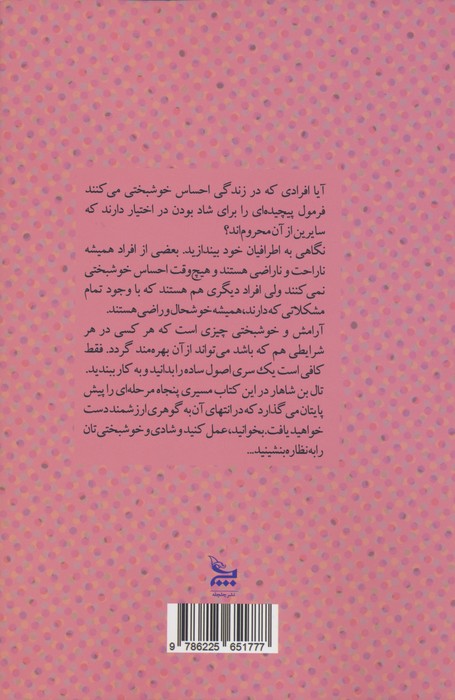 آیا افرادی که در زندگی احساس خوشبختی می‌کنند
فرمول پیچیده‌ای را برای شاد بودن در اختیار دارند که
سایرین از آن محروم‌اند؟
نگاهی به اطرافیان خود بیندازید. بعضی از افراد همیشه
ناراحت و ناراضی هستند و هیچ‌وقت احساس خوشبختی
نمی‌کنند ولی افراد دیگری هم هستند که با وجود تمام
مشکلاتی که دارند، همیشه خوشحال و راضی هستند.
آرامش و خوشبختی چیزی است که هر کسی در هر
شرایطی هم که باشد می‌تواند از آن بهره‌مند گردد. فقط
کافی است یک سری اصول ساده را بدانید و به کار ببندید.
تال بن شاهار در این کتاب مسیری پنجاه مرحله‌ای را پیش
پایتان می‌گذارد که در انتهای آن به گوهری ارزشمند دست
خواهید یافت. بخوانید، عمل کنید و شادی و خوشبختی تان
را به نظاره بنشینید...
9 786225 651777